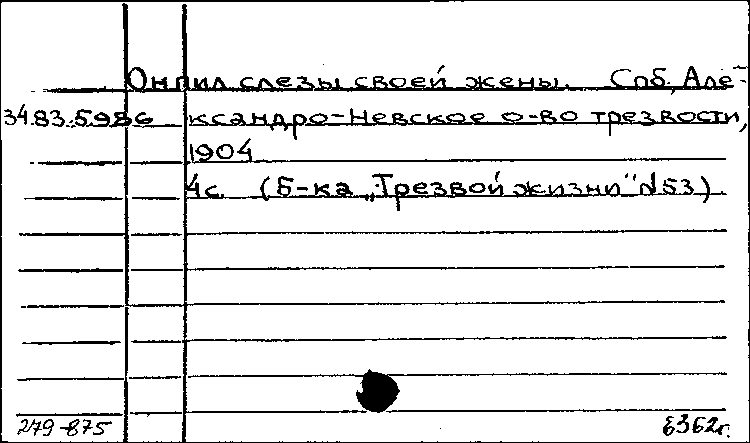 Он пил слезы своей жены. Спб, Але-
34.83.5986 ксандро-Невское о-во трезвости,
1904
4с. (Б-ка „Трезвой жизни" №53)
279-875 6362г.